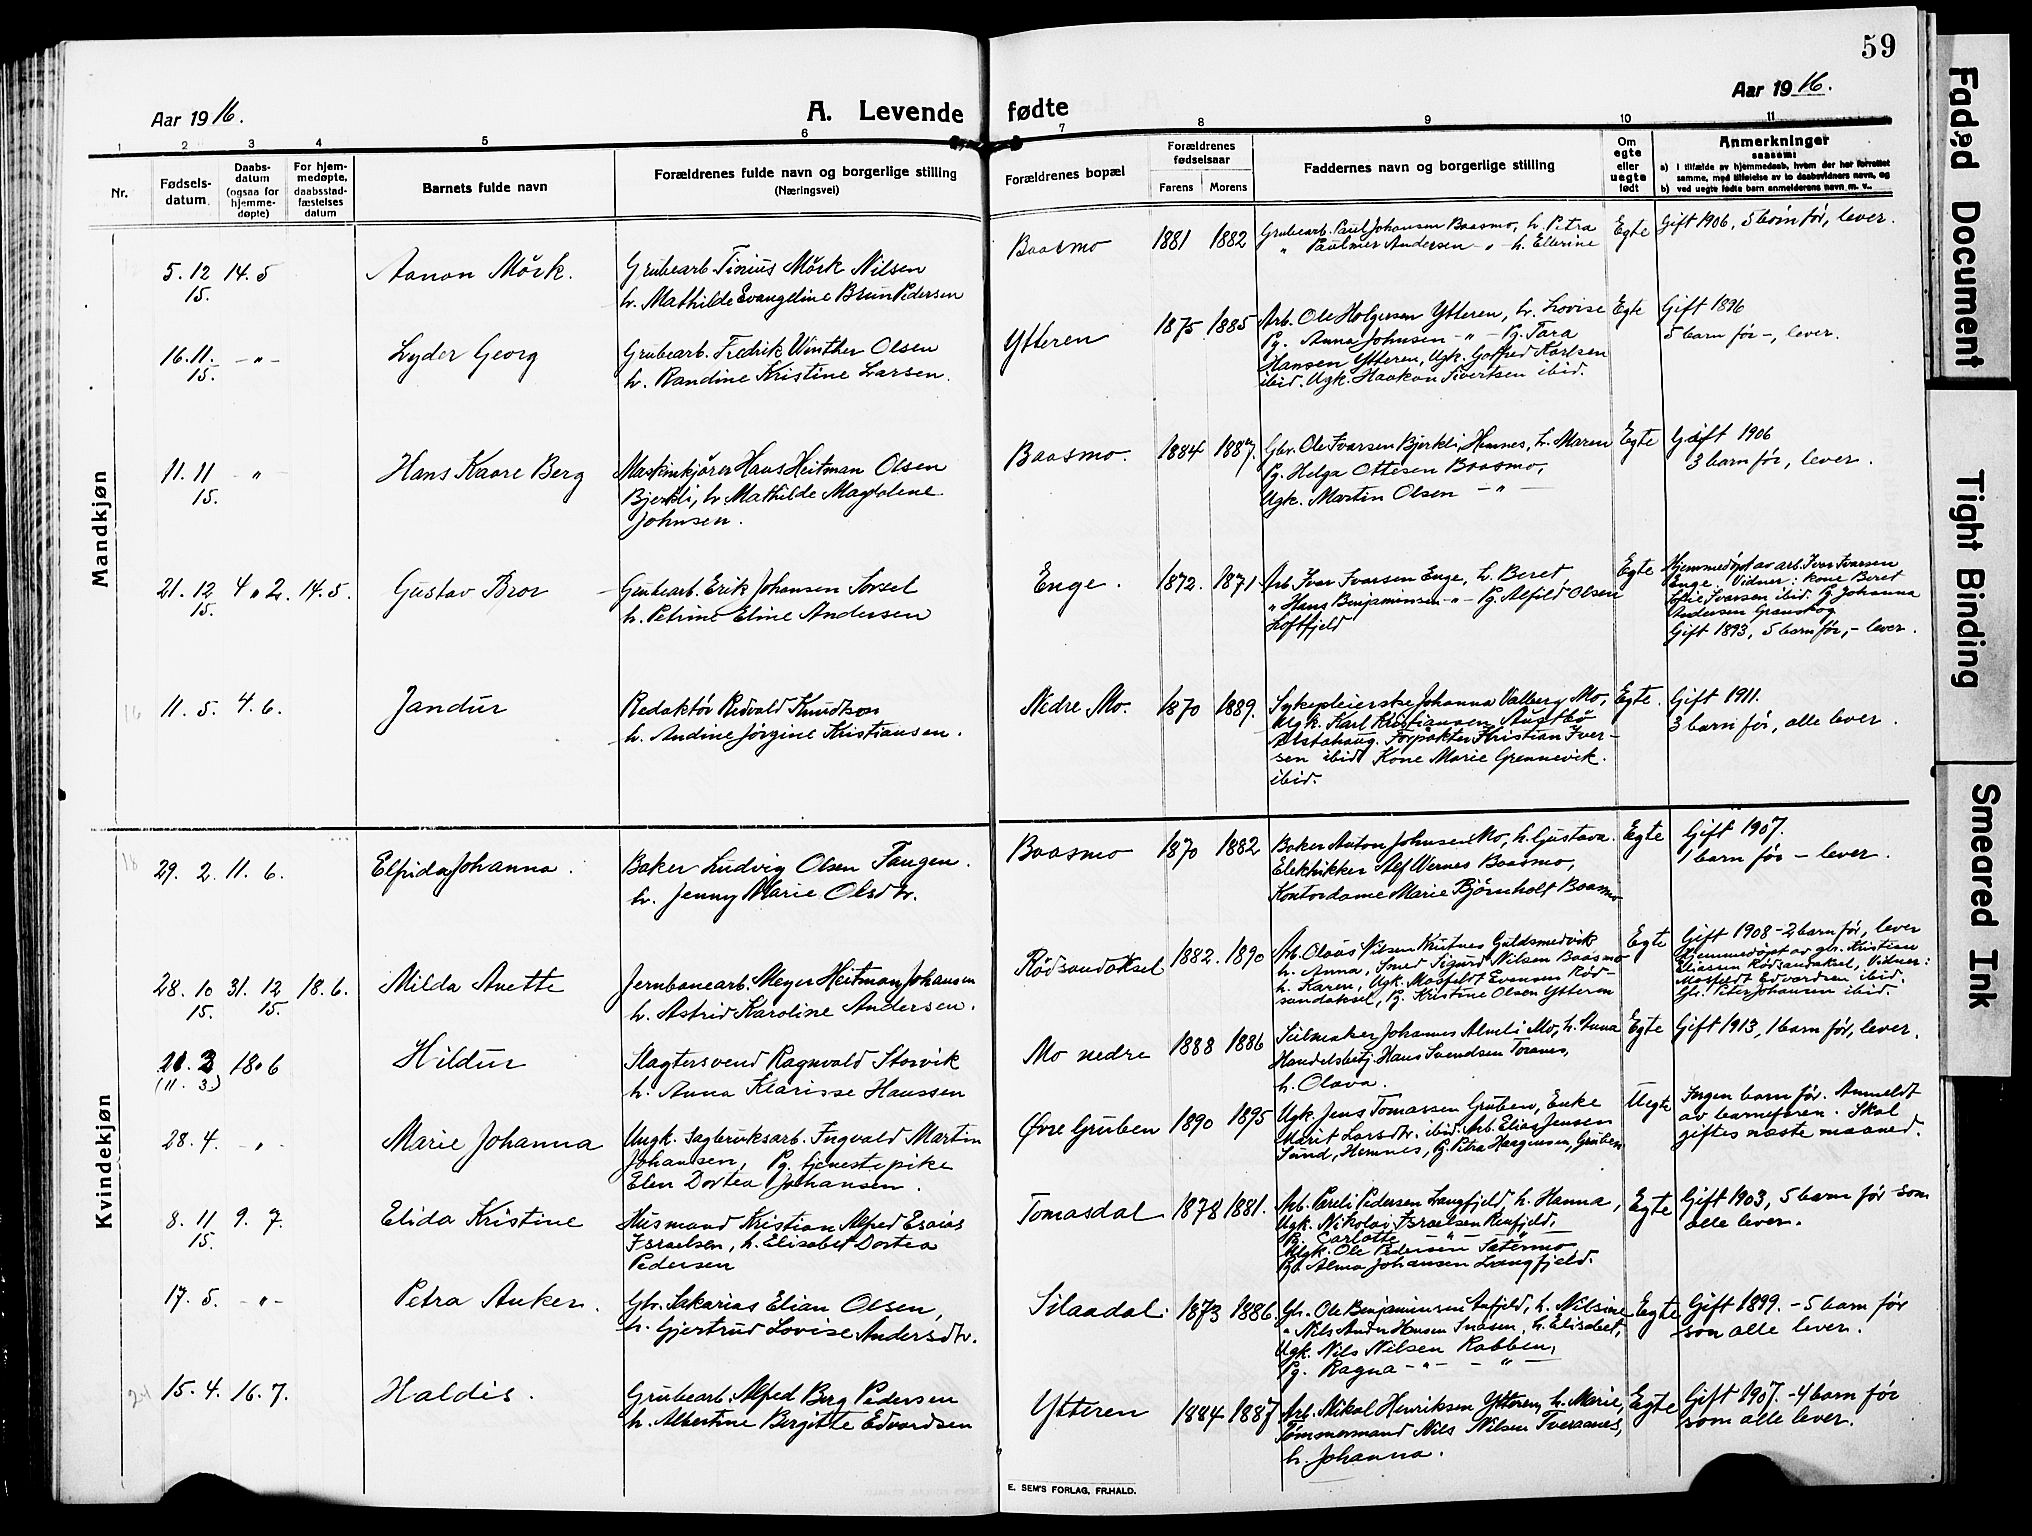 59
Aar 1916.
A. Levende fødte
Aar 1916.
1 2 3 4 5 6 7 8 9 10 11
Nr.
Fødsels-
datum
Daabs-
datum
(ogsaa for
hjemme-
døpte)
For hjem-
medøpte,
daabsstad-
fæstelses
datum
Barnets fulde navn
Forældrenes fulde navn og borgerlige stilling
(Næringsvei)
Forældrenes bopæl
Forældrenes
fødselsaar
Farens Morens
Faddernes navn og borgerlige stilling
Om
egte
eller
uegte
født
Anmerkninger
saasom:
a) i tilfælde av hjemmedaab, hvem der har forrettet
samme, med tilføielse av to daabsvidners navn, og
b) ved uegte fødte barn anmelderens navn m. v..
Mandkjøn
5. 12 14. 5
15.
Aanon Mörk.
Grubearb. Tinius Mörk Nilsen
h. Mathilde Evangeline Brun Pedersen
Baasmo
1881 1882
Grubearb. Paul Johansen Baasmo, h. Petra
" Paulmer Andersen - " - h. Ellerine
Egte
Gift 1906, 5 børn før, lever.
16. 11. - " -
15.
Lyder Georg
Grubearb. Fredrik Winther Olsen
h. Randine Kristine Larsen.
Ytteren
1875 1885
Arb. Ole Holgersen Ytteren, h. Lovise
Pg. Anna Johnsen - " - Pg. Tara
Hansen Ytteren, Ugk. Gotfred Karlsen
ibid. Ugk. Haakon Sivertsen ibid.
Egte
Gift 1896
5 barn før -, lever.
11. 11 - " -
15.
Hans Kaare Berg
Maskinkjører Hans Heitman Olsen
Bjerkli, h. Mathilde Magdalene
Johnsen.
Baasmo.
1884 1887.
Gbr. Ole Ivarsen Bjerkli, Hemnes, h. Maren
Pg. Helga Ottesen Baasmo,
Ugk. Martin Olsen - " -
Egte
Gift 1906
3 barn før, lever.
21. 12 4. 2. 14. 5.
15.
Gustav Bror
Grubearb. Erik Johansen Sorsel
h. Petrine Eline Andersen
Enge.
1872. 1871
Arb. Ivar Ivarsen Enge, h. Beret
" Hans Benjaminsen - " - Pg. Alfild Olsen
Loftfjeld
Egte
Hjemmedøpt av arb. Iver Ivarsen
Enge. Vidner: kone Beret
Sofie Ivarsen ibid. Pg. Johanna
Andersen Granskog
Gift 1893, 5 barn før, - lever.
16
11. 5. 4. 6.
Jandur
Redaktör Redvald Knudtson
h. Andine Jörgine Kristiansen.
Nedre Mo.
1870 1889.
Sykepleierske Johanna Valberg Mo,
Ugk. Karl Kristiansen Austbö
Alstahaug. Forpakter Kristian Iver-
sen ibid. Kone Marie Grennevik.
ibid.
Egte.
Gift 1911.
3 barn før, alle lever.
Kvindekjøn
18
29. 2. 11. 6.
Elfrida Johanna.
Baker Ludvig Olsen Tangen.
h. Jenny Marie Olsdtr.
Baasmo
1870 1882
Baker Anton Johnsen Mo, h. Gustava.
Elektrikker Alf Wernes Baasmo,
Kontordame Marie Björnholt Baasmo
Egte
Gift 1907.
1 barn før - lever.
28. 10 31. 12 18. 6.
15. 15.
Milda Anette
Jernbanearb. Meyer Heitman Johansen
h. Astrid Karoline Andersen.
Rödsandaksel
1882. 1890
Arb. Olaus Nilsen Krutnes Guldsmedvik
h. Anna, Smed Sigurd Nilsen Baasmo
h. Karen, Ugk. Mosfeldt Evensen Röd-
sandaksel, Pg. Kristine Olsen Ytteren
Egte
Gift 1908 - 2 barn før, lever
Hjemmedøpt av gbr. Kristian
Eliasen Rödsandaksel, Vidner:
Mosfeldt Edvardsen ibid.
Gbr. Peter Johansen ibid.
21. 3 18. 6
(11. 3.)
Hildur
Slagtersvend Ragnvald Storvik
h. Anna Klarisse Hanssen
Mo nedre
1888 1886
Seilmaker Johannes Alneli Mo, h. Anna
Handelsbetj. Hans Svendsen Toranes,
h. Olava.
Egte
Gift 1913, 1 barn før, lever.
28. 4. - " -
Marie Johanna
Ungk. Sagbruksarb. Ingvald Martin
Johansen, Pg. tjenestepike
Elen Dortea Johansen.
Øvre Gruben
1890 1895
Ugk. Jens Tomassen Gruben, Enke
Marit Larsdtr. ibid. Arb. Elias Jensen
Sund, Hemnes, Pg. Petra Haagensen, Gruben
Uegte
Ingen barn før. Anmeldt
av barnefaren. Skal
giftes næste maaned.
8. 11 9. 7.
15.
Elida Kristine
Husmand Kristian Alfred Esaias
Israelsen, h. Elisabet Dortea
Pedersen
Tomasdal
1878 1881.
Arb. Pareli Pedersen Langfjeld, h. Hanna,
Ugk. Nikolai Israelsen Renfjeld,
Pg. Carlotte - " - - " -
Ugk. Ole Pedersen Sætermo
Pg. Alma Johansen Langfjeld.
Egte
Gift 1903, 5 barn før som
alle lever.
17. 5. - " -
Petra Anker.
Gbr. Sakarias Elian Olsen,
h. Gjertrud Lovise Andersdtr.
Silaadal.
1873 1886.
Gbr. Ole Benjaminsen Aafjeld, h. Nilsine
" Nils Anders Hansen Snasen, h. Elisabet,
Ugk. Nils Nilsen Rabben,
Pg. Ragna - " - - " -
Egte
Gift 1899. - 5 barn før
som alle lever.
24
15. 4. 16. 7.
Haldis.
Grubearb. Alfred Berg Pedersen
h. Albertine Bergitte Edvardsen
Ytteren
1884 1887
Arb. Nikal Henriksen Ytteren, h. Marie,
Tömmermand Nils Nilsen Tveraanes,
h. Johanna.
Egte
Gift 1907. - 4 barn før
som alle lever.
E. SEM'S FORLAG, FR.HALD.
Faded Document
Tight Binding
Smeared Ink